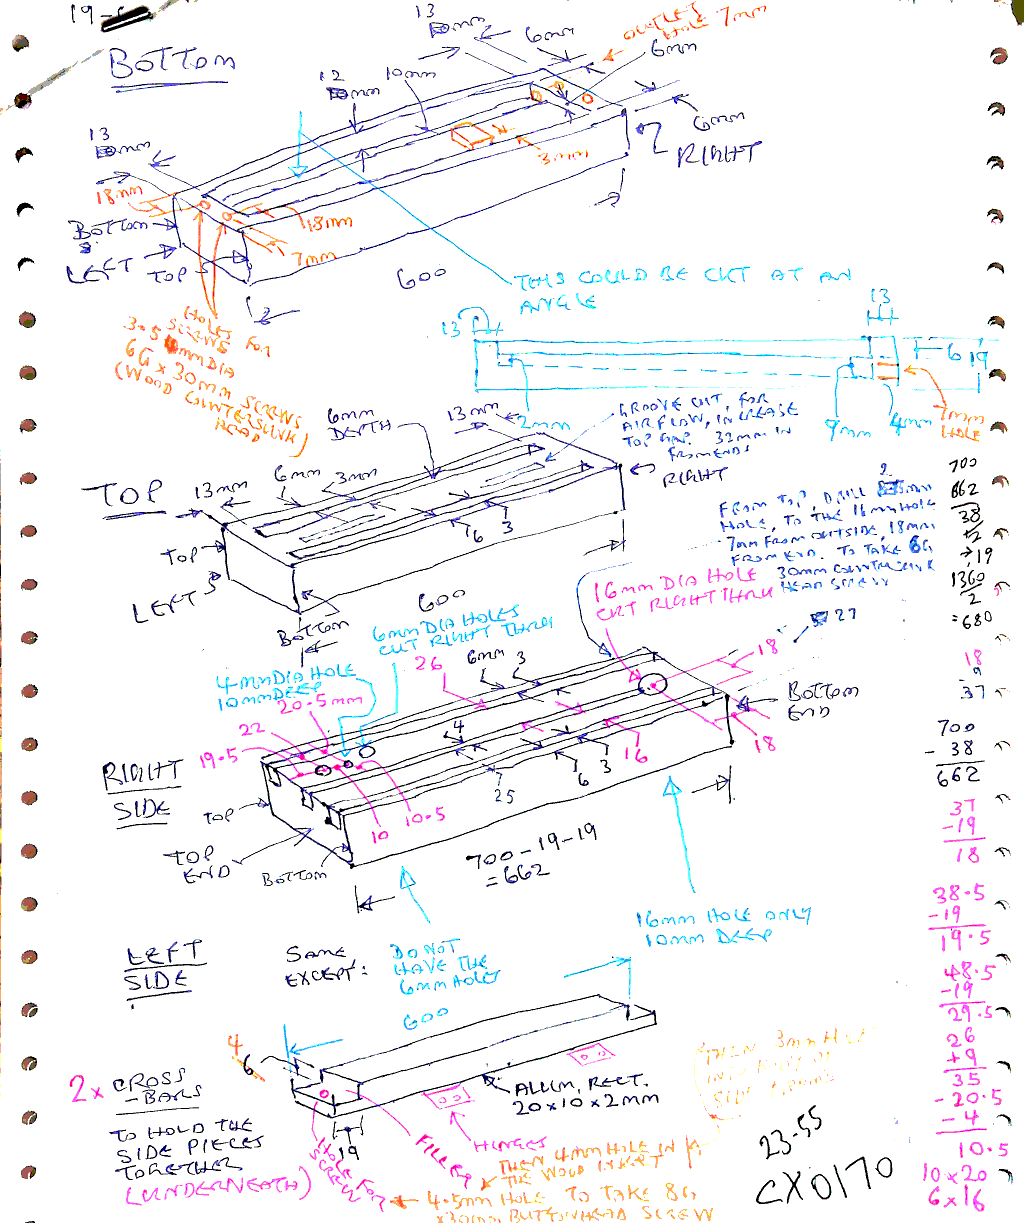 19-
BOTTOM
13
mm
6mm
OUTLET
HOLE 7mm
6mm
12
mm
10mm
6mm
RIGHT
3mm
13
mm
18mm
BOTTOM
LEFT
TOP
18mm
7mm
600
THIS COULD BE CUT AT AN
ANGLE
HOLES FOR
SCREWS
3.5 mm DIA
6G x 30mm SCREWS
(WOOD COUNTERSUNK
HEAD)
13
13
6
19
2mm
9mm
4mm
7mm
HOLE
6mm
DEPTH
13mm
GROOVE CUT, FOR
AIRFLOW, INCREASE
TOP GAP. 32mm IN
FROM ENDS
RIGHT
TOP
13mm
6mm
3mm
6
3
TOP
LEFT
BOTTOM
600
FROM TOP, DRILL
HOLE, TO THE 16mm HOLE
7mm FROM OUTSIDE, 18mm
FROM END. TO TAKE 6G
30mm COUNTERSUNK
HEAD SCREW
700
662
38
÷2
→19
1360
2
=680
16mm DIA HOLE
CUT RIGHT THRU
27
6mm DIA HOLES
CUT RIGHT THRU
4mm DIA HOLE
10mm DEEP
20.5mm
22
19.5
26
6mm
3
18
BOTTOM
END
18
4
16
6
3
25
RIGHT
SIDE
TOP
TOP
END
BOTTOM
10
10.5
700-19-19
=662
18
37
700
- 38
662
37
-19
18
38.5
-19
19.5
48.5
-19
29.5
26
+9
35
- 20.5
- 4
10.5
10 x 20
6 x 16
16mm HOLE ONLY
10mm DEEP
LEFT
SIDE
SAME
EXCEPT:
DO NOT
HAVE THE
6mm HOLES
600
4
6
2 x CROSS
-BARS
TO HOLD THE
SIDE PIECES
TOGETHER
(UNDERNEATH)
19
HOLE FOR
SCREW
FILLER
HINGES
ALUM, RECT.
20x10x2mm
THEN 3mm
SIDE
THEN 4mm HOLE IN
THE WOOD INSERT
4.5mm HOLE TO TAKE 8G
x30mm BUTTON HEAD SCREW
23-55
CX0170